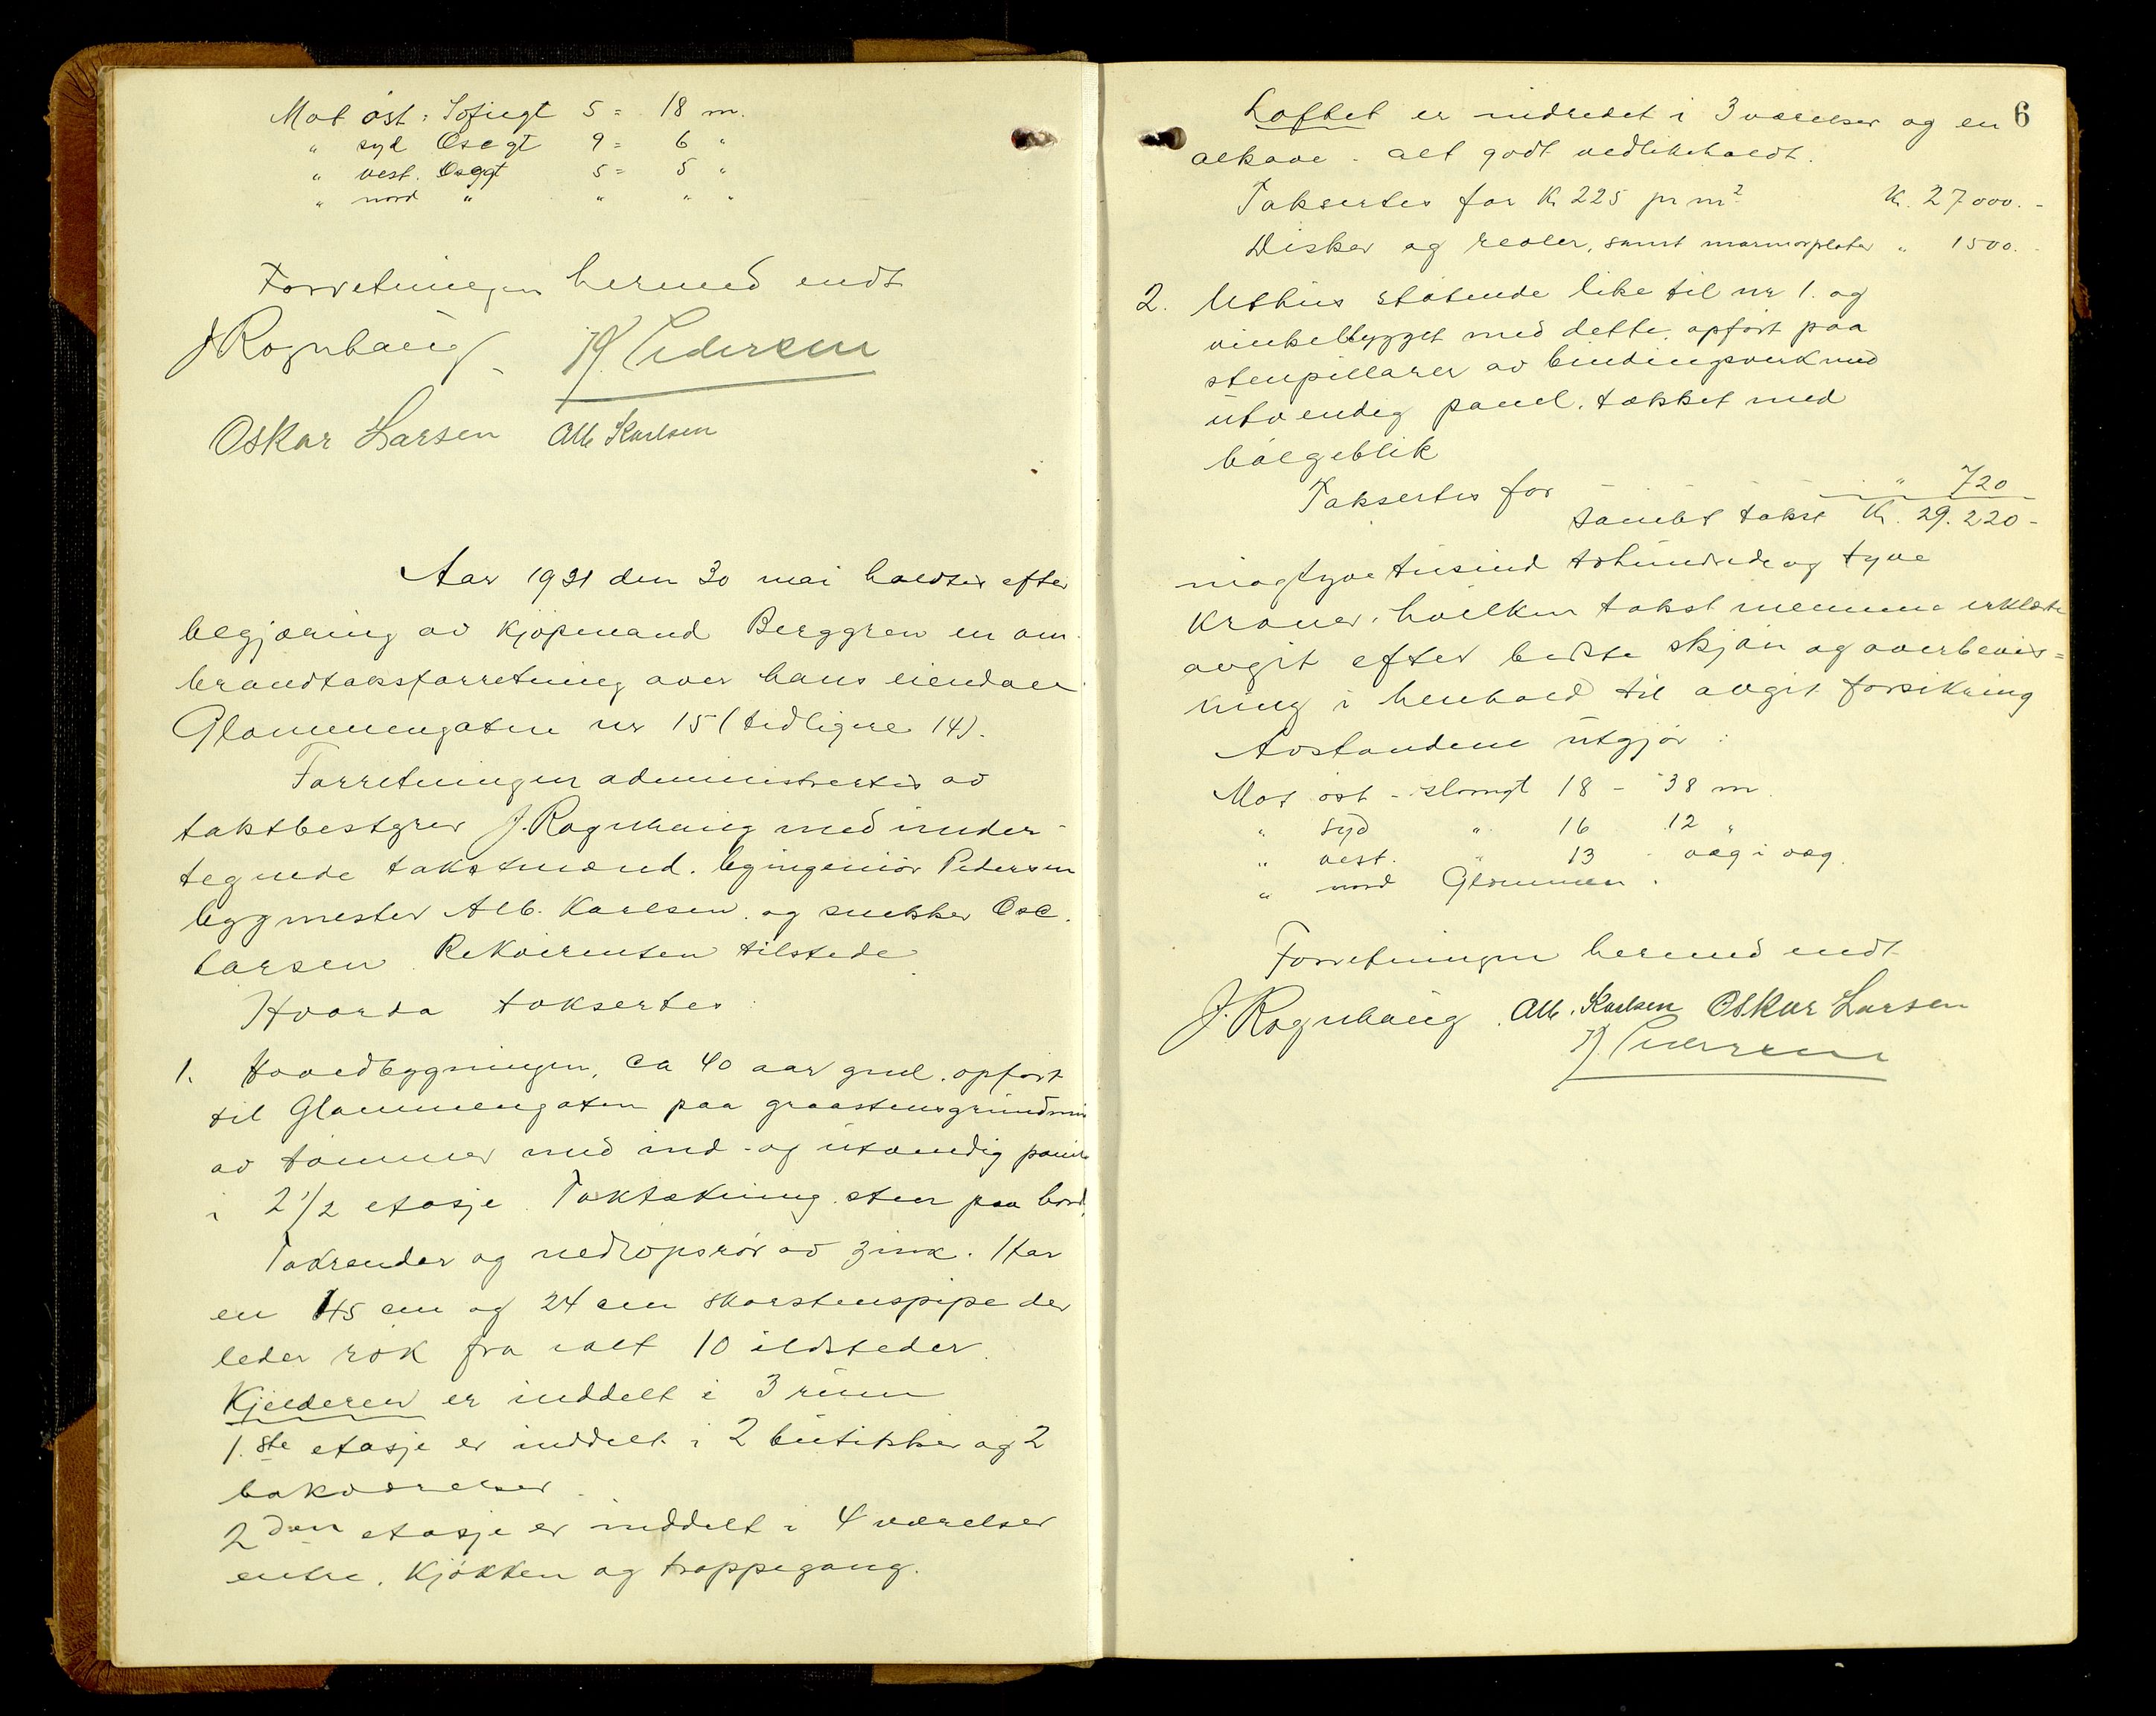 Mot øst: Sofiegt 5 = 18 m.
" syd Oscgt 9 = 6 "
" vest. Oscgt 5 = 5 "
" nord " " " "
Forretningen hermed endt
J Rognhaug H Pedersen
Oskar Larsen Alb Karlsen
Aar 1931 den 30 mai holdtes efter
begjæring av kjøpmand Berggren en om
brandtakstforretning over hans eiendom
Glommengaten nr 15 (tidligere 14).
Forretningen administrertes av
takstbestyrer J. Rognhaug med under-
tegnede takstmænd. byingeniør Pedersen
byggmester Alb. Karlsen og snekker Osc.
Larsen. Rekvirenten tilstede
Hvorda taksertes:
1. Hovedbygningen, ca 40 aar gml. opført
til Glommengaten paa graastensgrundmur
av tømmer med ind- og utvendig panel
i 2 1/2 etasje. Taktækning sten paa bord.
Takrender og nedløpsrør av zink. Har
en 45 cm og 24 cm skorstenspipe der
leder røk fra ialt 10 ildsteder.
Kjelderen er inddelt i 3 rum
1.ste etasje er inddelt i 2 butikker og 2
bakværelser.
2den etasje er inddelt i 4 værelser
entre, kjøkken og trappegang.
6
Loftet er indredet i 3 værelser og en
alkove - alt godt vedlikeholdt.
Taksertes for Kr 225 pr m2 Kr. 27000.-
Disker og reoler, samt marmorplater " 1500.-
2. Uthus støtende like til nr 1. og
vinkelbygget med dette, opført paa
stenpillarer av bindingsverk med
utvendig panel, tækket med
bølgeblik
Taksertes for " 720
Samlet takst Kr. 29.220-
niogtyvetusind tohundrede og tyve
Kroner, hvilken takst mennene erklærte
avgit efter bedste skjøn og overbevis=
ning i henhold til avgit forsikring
Avstandene utgjør:
Mot øst - Glomgt 18 - 38 m.
" syd " 16 12 "
" vest. " 13 - væg i væg.
" nord Glommen.
Forretningen hermed endt
J. Rognhaug. Alb. Karlsen Oskar Larsen
H Pedersen